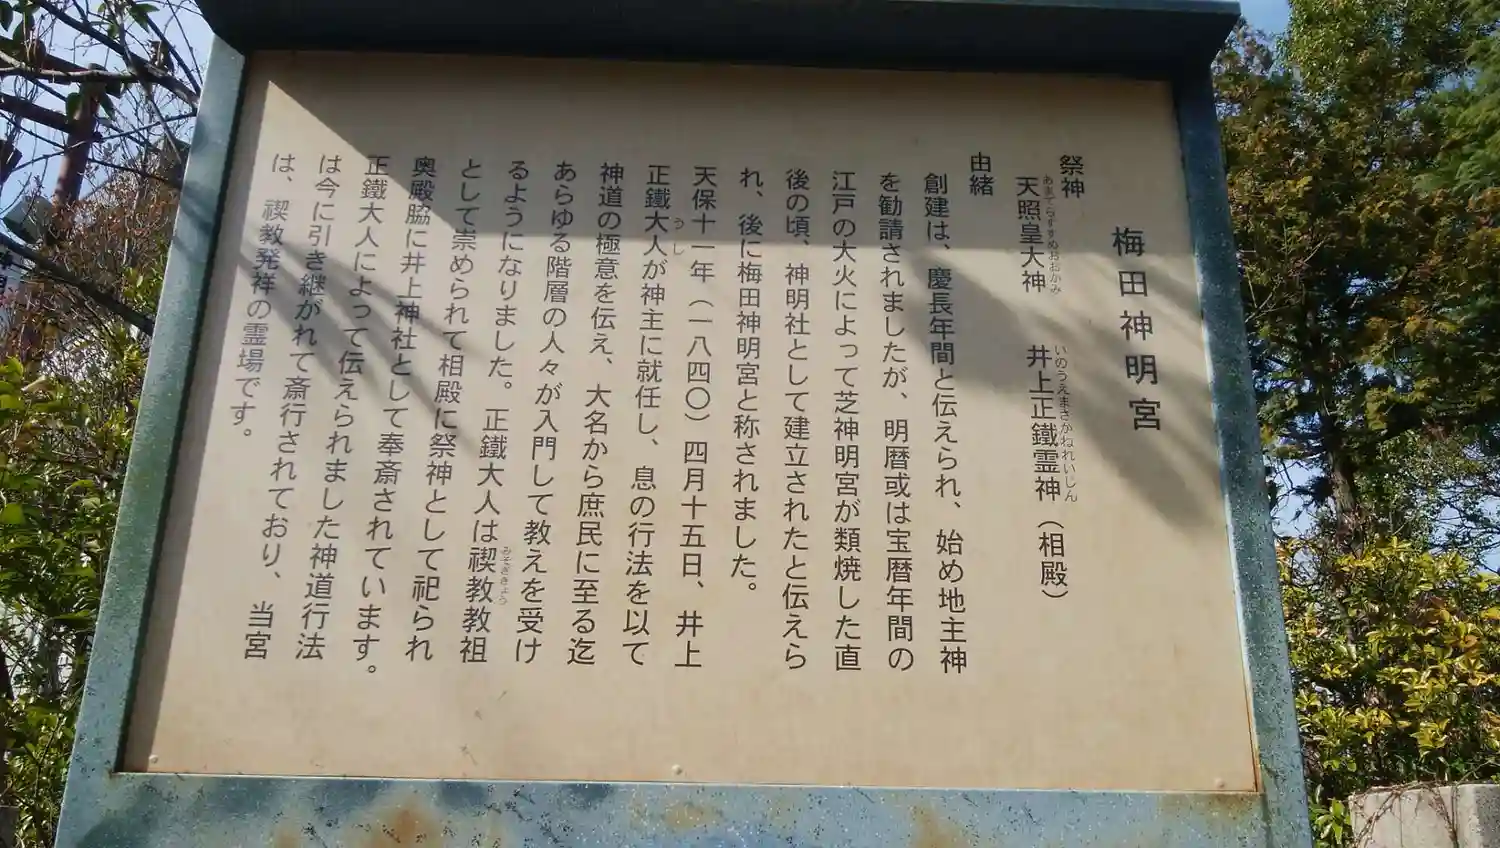 梅田神明宮
祭神
天照皇大神　井上正鐵霊神（相殿）
あまてらすすめおおかみ　いのうえまさかねれいじん
由緒
創建は、慶長年間と伝えられ、始め地主神
を勧請されましたが、明暦或は宝暦年間の
江戸の大火によって芝神明宮が類焼した直
後の頃、神明社として建立されたと伝えら
れ、後に梅田神明宮と称されました。
天保十一年（一八四〇）四月十五日、井上
正鐵大人が神主に就任し、息の行法を以て
うし
神道の極意を伝え、大名から庶民に至る迄
あらゆる階層の人々が入門して教えを受け
るようになりました。正鐵大人は禊教教祖
みそぎきょう
として崇められて相殿に祭神として祀られ
奥殿脇に井上神社として奉斎されています。
正鐵大人によって伝えられました神道行法
は今に引き継がれて斎行されており、当宮
は、禊教発祥の霊場です。